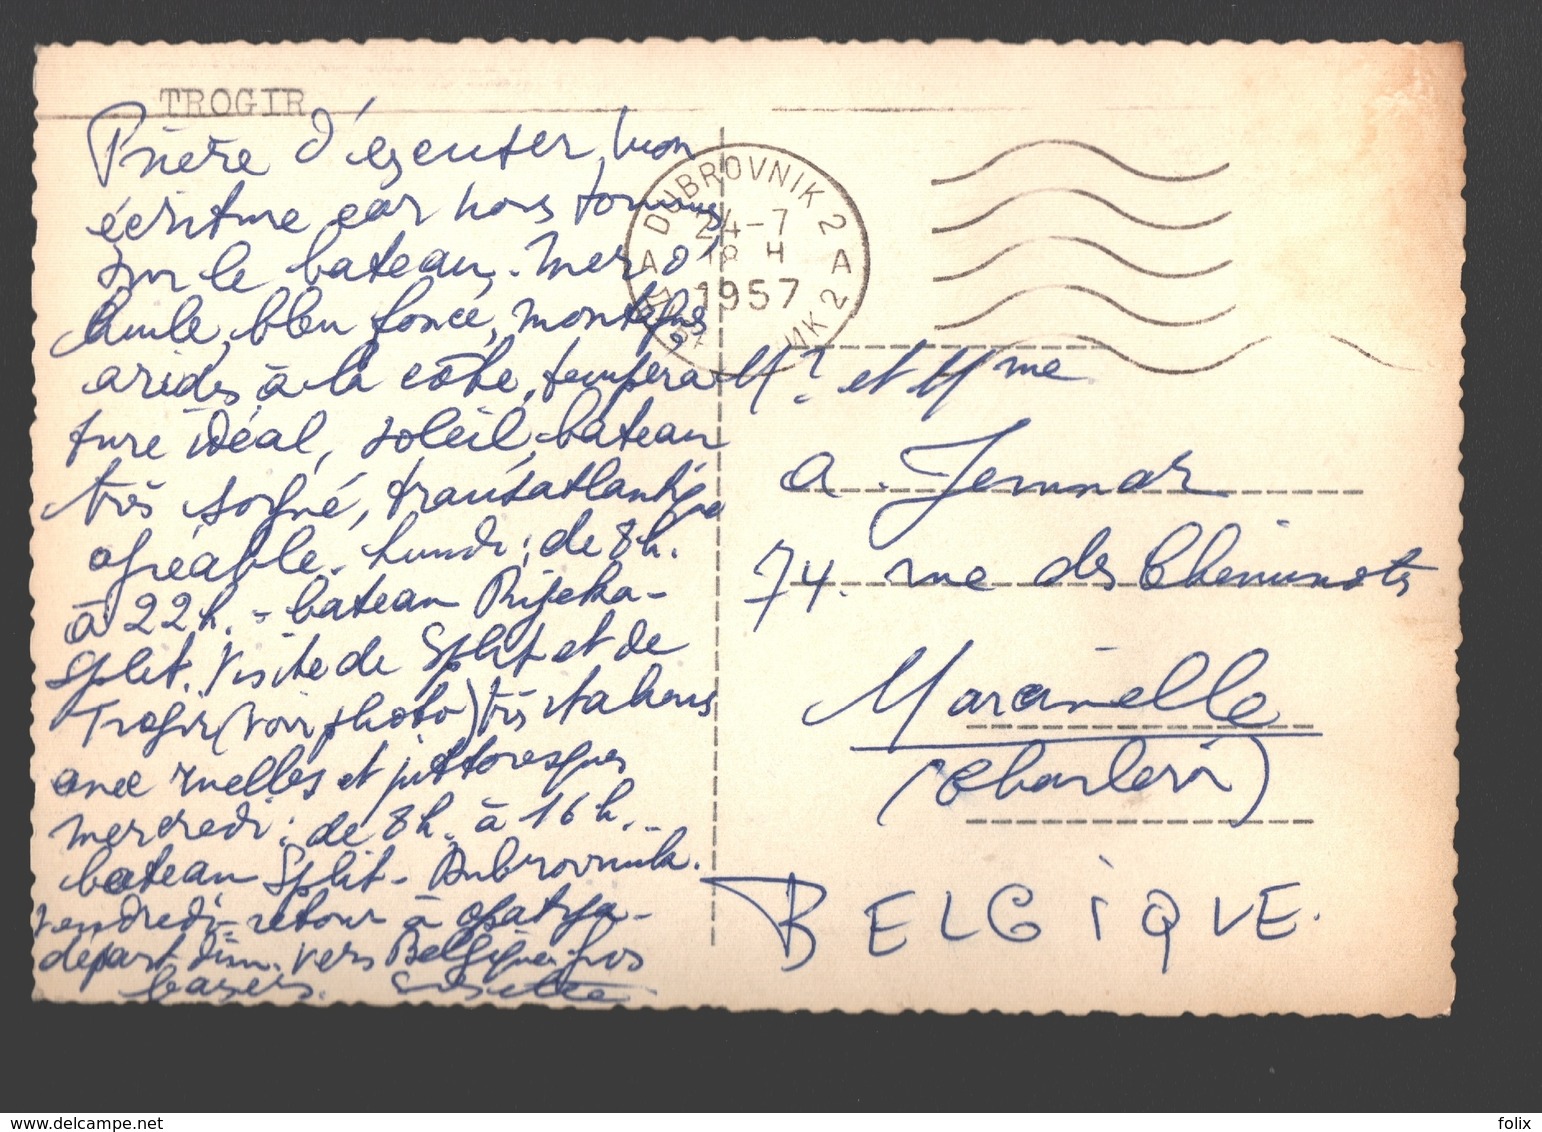 TROGIR
Prière d'excuser mon
écriture car nous sommes
sur le bateau. Mer d'
huile, bleu foncé, montagnes
arides à la côte, tempéra
ture idéal, soleil, bateau
très soigné, transatlantique
agréable. Lundi: de 8h.
à 22h. - bateau Rijeka-
Split. Visite de Split et de
Trogir (voir photo) très italiens
avec ruelles et pittoresques
mercredi: de 8h. à 16h. -
bateau Split - Dubrovnik.
vendredi - retour à Opatija -
départ dim. vers Belgique. Gros
baisers.
DUBROVNIK 2
A 24-7 A
18 H
1957
Mr. et Mme
A. Jemmar
74. rue des Cheminots
Marcinelle
(Charleroi)
BELGIQUE.
felix
www.delcampe.net